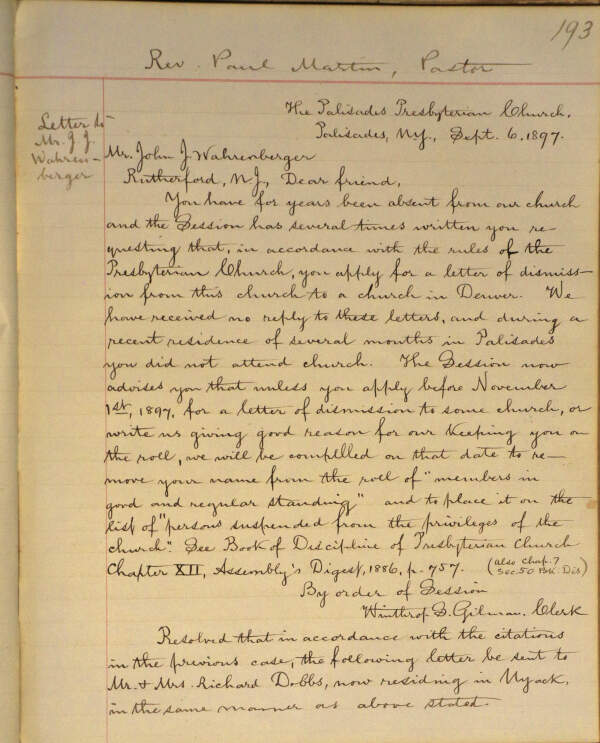 193
Rev. Paul Martin, Pastor
The Palisades Presbyterian Church,
Palisades, N.Y., Sept. 6, 1897.
Letter to
Mr. J. J.
Wahren-
berger
Mr. John J. Wahrenberger
Rutherford, N.J., Dear friend,
You have for years been absent from our church
and the Session has several times written you re-
questing that, in accordance with the rules of the
Presbyterian Church, you apply for a letter of dismiss-
ion from this church to a church in Denver. We
have received no reply to these letters, and during a
recent residence of several months in Palisades
you did not attend church. The Session now
advises you that unless you apply before November
1st, 1897, for a letter of dismission to some church, or
write us giving good reason for our keeping you on
the roll, we will be complled on that date to re-
move your name from the roll of "members in
good and regular standing" and to place it on the
list of "persons suspended from the privileges of the
church". See Book of Discipline of Presbyterian Church
Chapter XII, Assembly's Digest, 1886, p. 757. (also Chap. 7
Sec. 50 Bk. Dis)
By order of Session
Winthrop S. Gilman, Clerk
Resolved that in accordance with the citations
in the previous case, the following letter be sent to
Mr. & Mrs. Richard Dobbs, now residing in Nyack,
in the same manner as above stated.